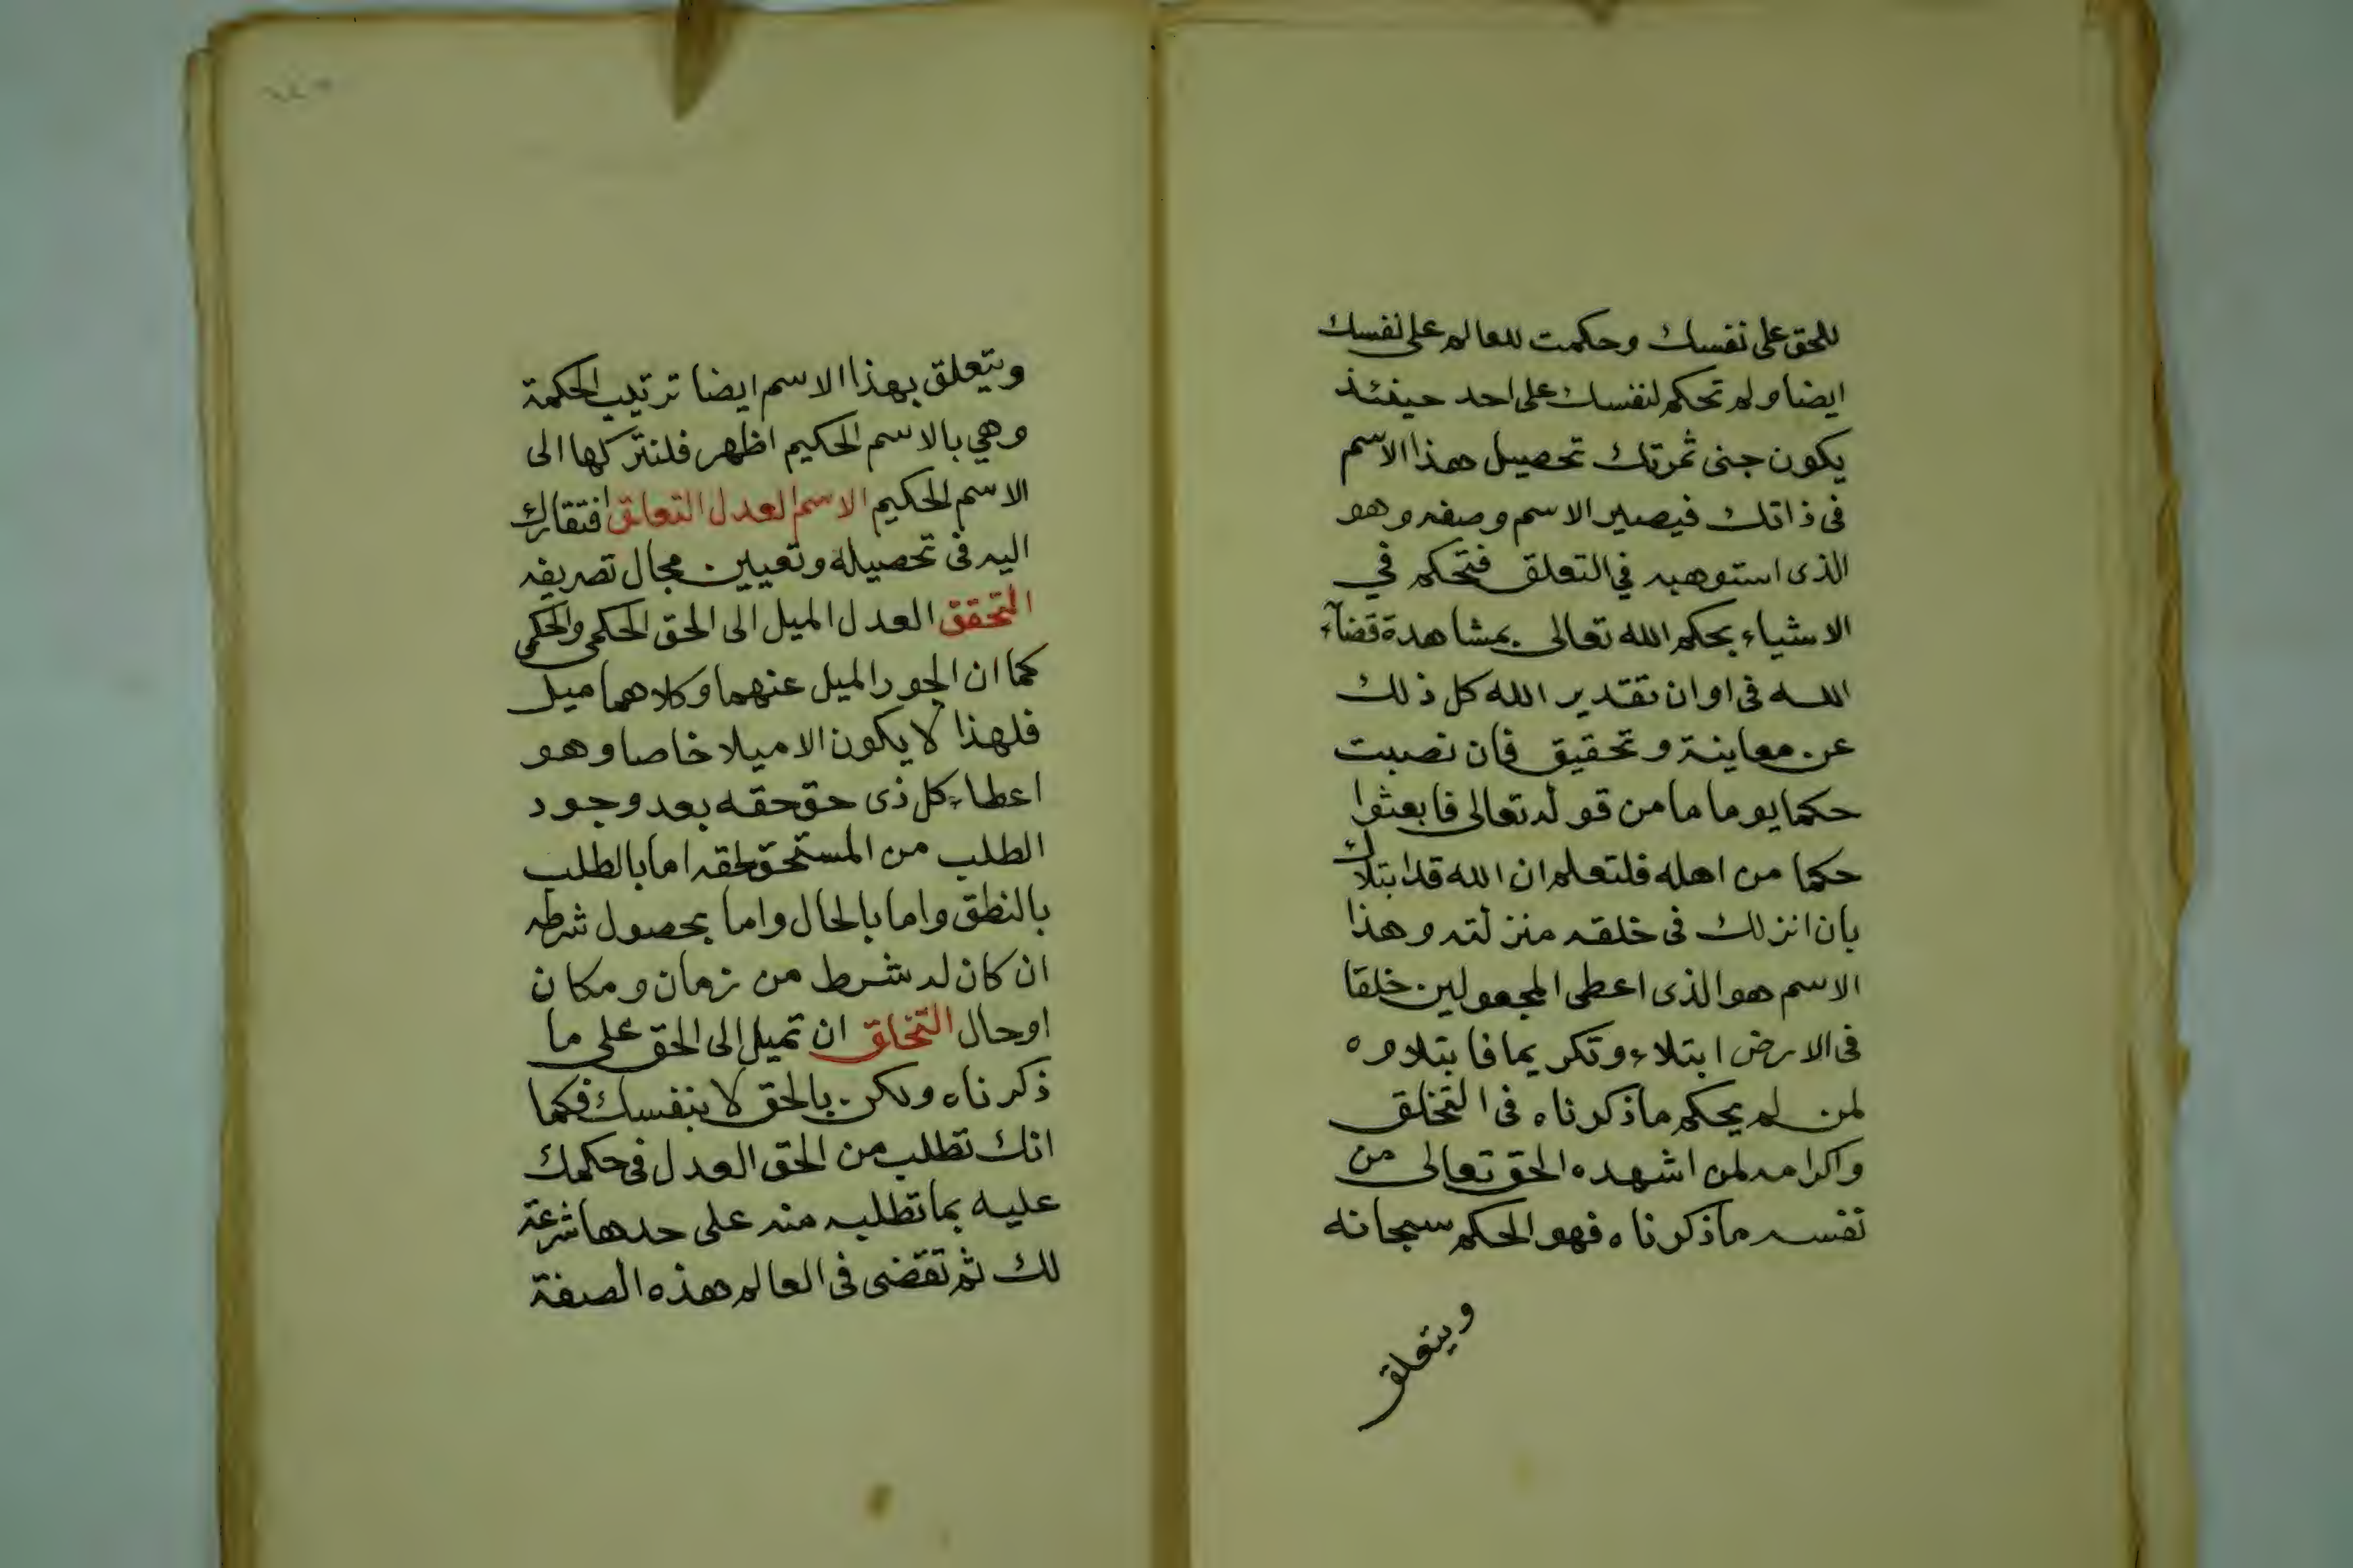 للحق على نفسك وحكمت للعالم على نفسك
ايضا ولم تحكم لنفسك على احد حينئذ
يكون جنى ثمرتك تحصيل هذا الاسم
فى ذاتك فيصير الاسم وصفه وهو
الذى استوهبه في التعلق فتحكم في
الاشياء بحكم الله تعالى بمشاهدة قضآء
الله فى اوان تقدير الله كل ذلك
عن معاينة وتحقيق فان نصبت
حكما يوما ما من قوله تعالى فابعثوا
حكما من اهله فلتعلم ان الله قد ابتلاك
بان انزلك فى خلقه منزلته وهذا
الاسم هو الذى اعطى المجعولين خلقا
فى الارض ابتلاء وتكريما فابتلاوه
لمن لم يحكم ما ذكرناه فى التخلق
واكرامه لمن اشهده الحق تعالى من
نفسه ما ذكرناه فهو الحكم سبحانه
ويتعلق
ويتعلق بهذا الاسم ايضا ترتيب الحكمة
وهي بالاسم الحكيم اظهر فلنتركها الى
الاسم الحكيم الاسم العدل التعلق افتقارك
اليه فى تحصيله وتعيين مجال تصريفه
التحقق العدل الميل الى الحق الحكمى والحكمى
كما ان الجور الميل عنهما وكلاهما ميل
فلهذا لا يكون الا ميلا خاصا وهو
اعطاء كل ذى حق حقه بعد وجود
الطلب من المستحق لحقه اما بالطلب
بالنطق واما بالحال واما بحصول شرطه
ان كان له شرط من زمان ومكان
اوحال التخلق ان تميل الى الحق على ما
ذكرناه ولكن بالحق لا بنفسك فكما
انك تطلب من الحق العدل فى حكمك
عليه بما تطلبه منه على حدها شرعة
لك ثم تقضى فى العالم هذه الصفة